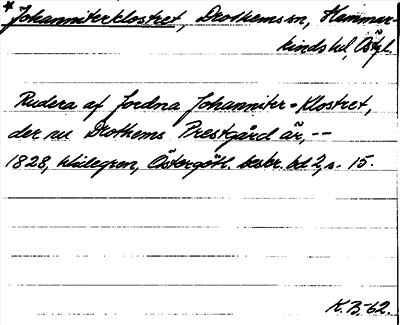 * Johanniterklostret, Drothems sn, Hammar-
kinds hd, Östgl.
Rudera af fordna Johanniter-Klostret,
der nu Drothems Prestgård är, --
1828, Widegren, Östergötl. beskr. bd 2, s. 15.
K.B-62.